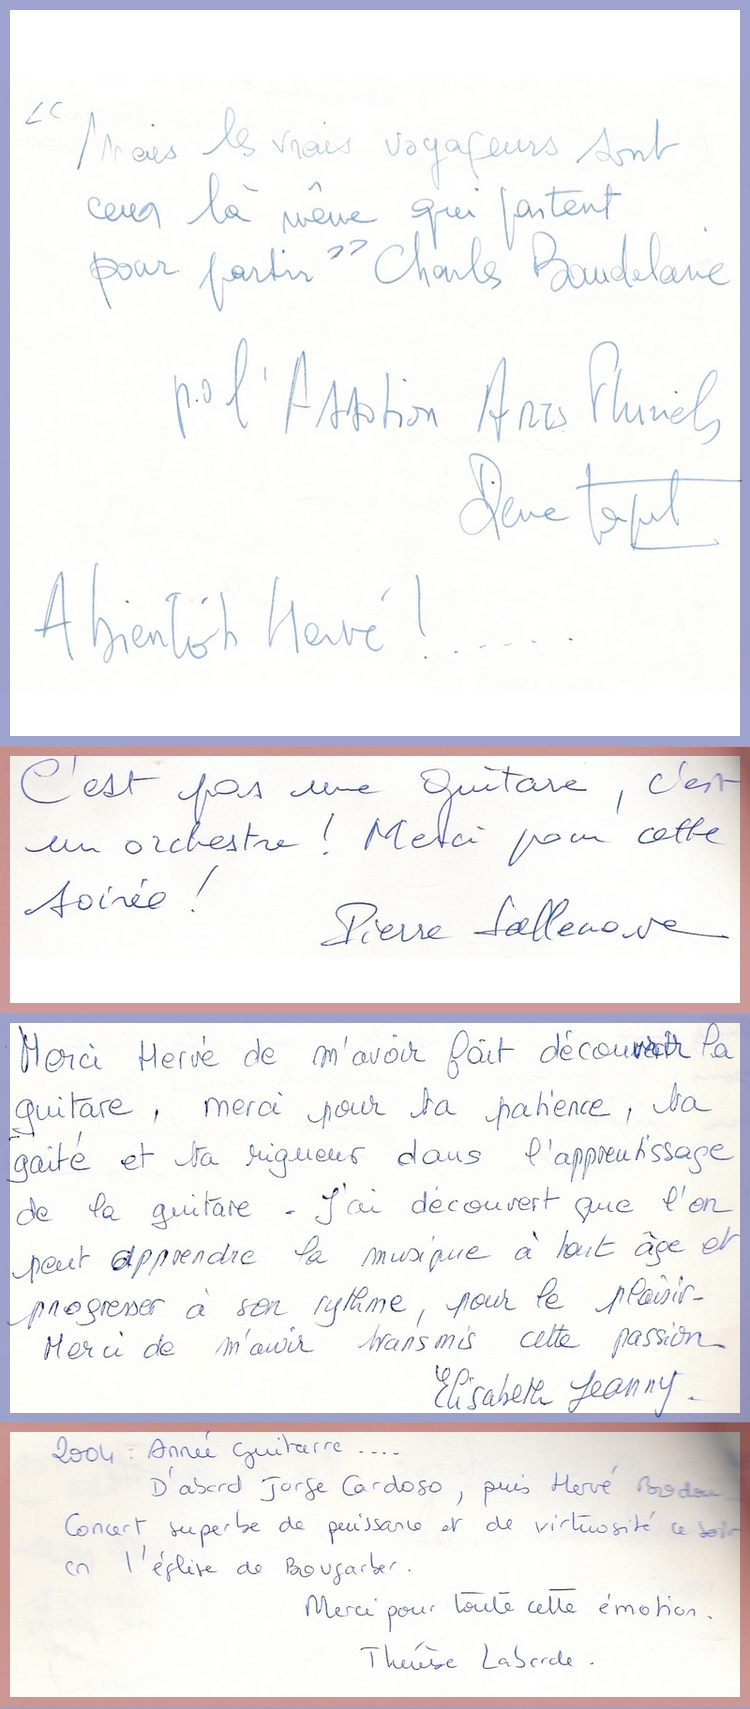 "Mais les vrais voyageurs sont
ceux là même qui partent
pour partir" Charles Baudelaire
p.o l'Assotion Arts Pluriels
A bientôt Hervé !.....
C'est pas une guitare, c'est
un orchestre ! Merci pour cette
soirée !
Pierre Sallenave
Merci Hervé de m'avoir fait découvrir la
guitare, merci pour ta patience, ta
gaité et ta rigueur dans l'apprentissage
de la guitare - J'ai découvert que l'on
peut apprendre la musique à tout âge et
progresser à son rythme, pour le plaisir-
Merci de m'avoir transmis cette passion
Elisabeth Jeanny.
2004 : Année guitarre ....
D'abord Jorge Cardoso, puis Hervé
Concert superbe de puissance et de virtuosité ce soir
en l'église de Bougarber.
Merci pour toute cette émotion.
Thérèse Laborde.